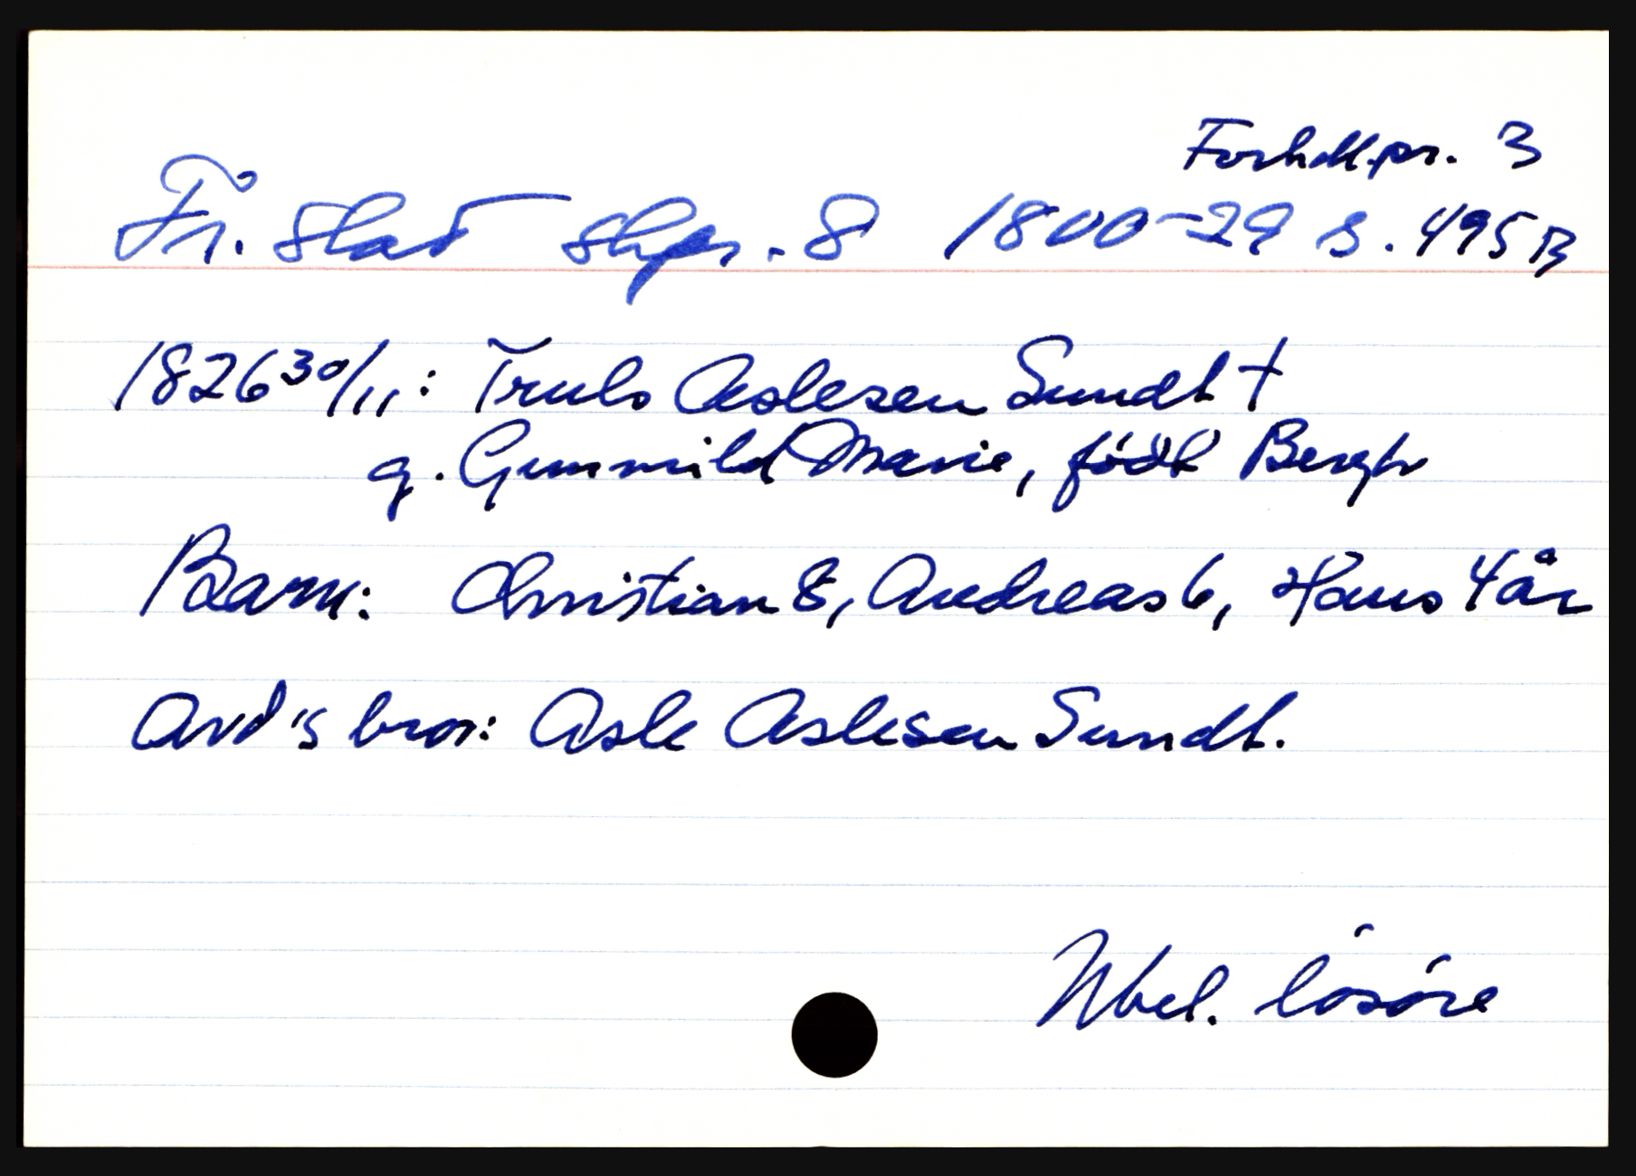 Forhdl.pr. 3
Fr.stad skpr. 8 1800-29 s. 495 B
1826 30/11: Truls Aslesen Sundt +
g. Gunnild Marie, født Bergh
Barn: Christian 8, Andreas 6, Hans 4 år
Avd's bror: Asle Aslesen Sundt.
Ubel. løsøre